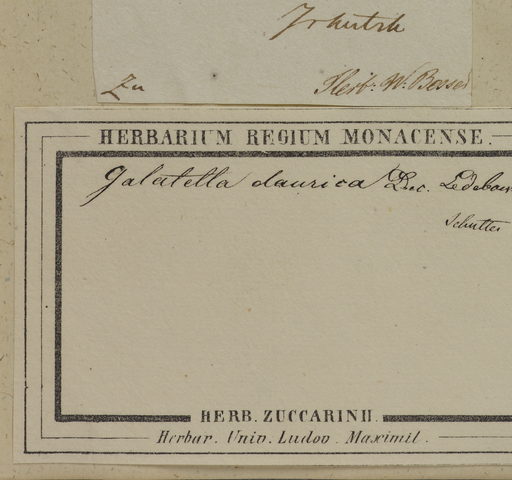 Irkutsk
Zu
Herb. W. Besser
HERBARIUM REGIUM MONACENSE.
Galatella daurica Ledebour
HERB. ZUCCARINII.
Herbar. Univ. Ludov. Maximil.